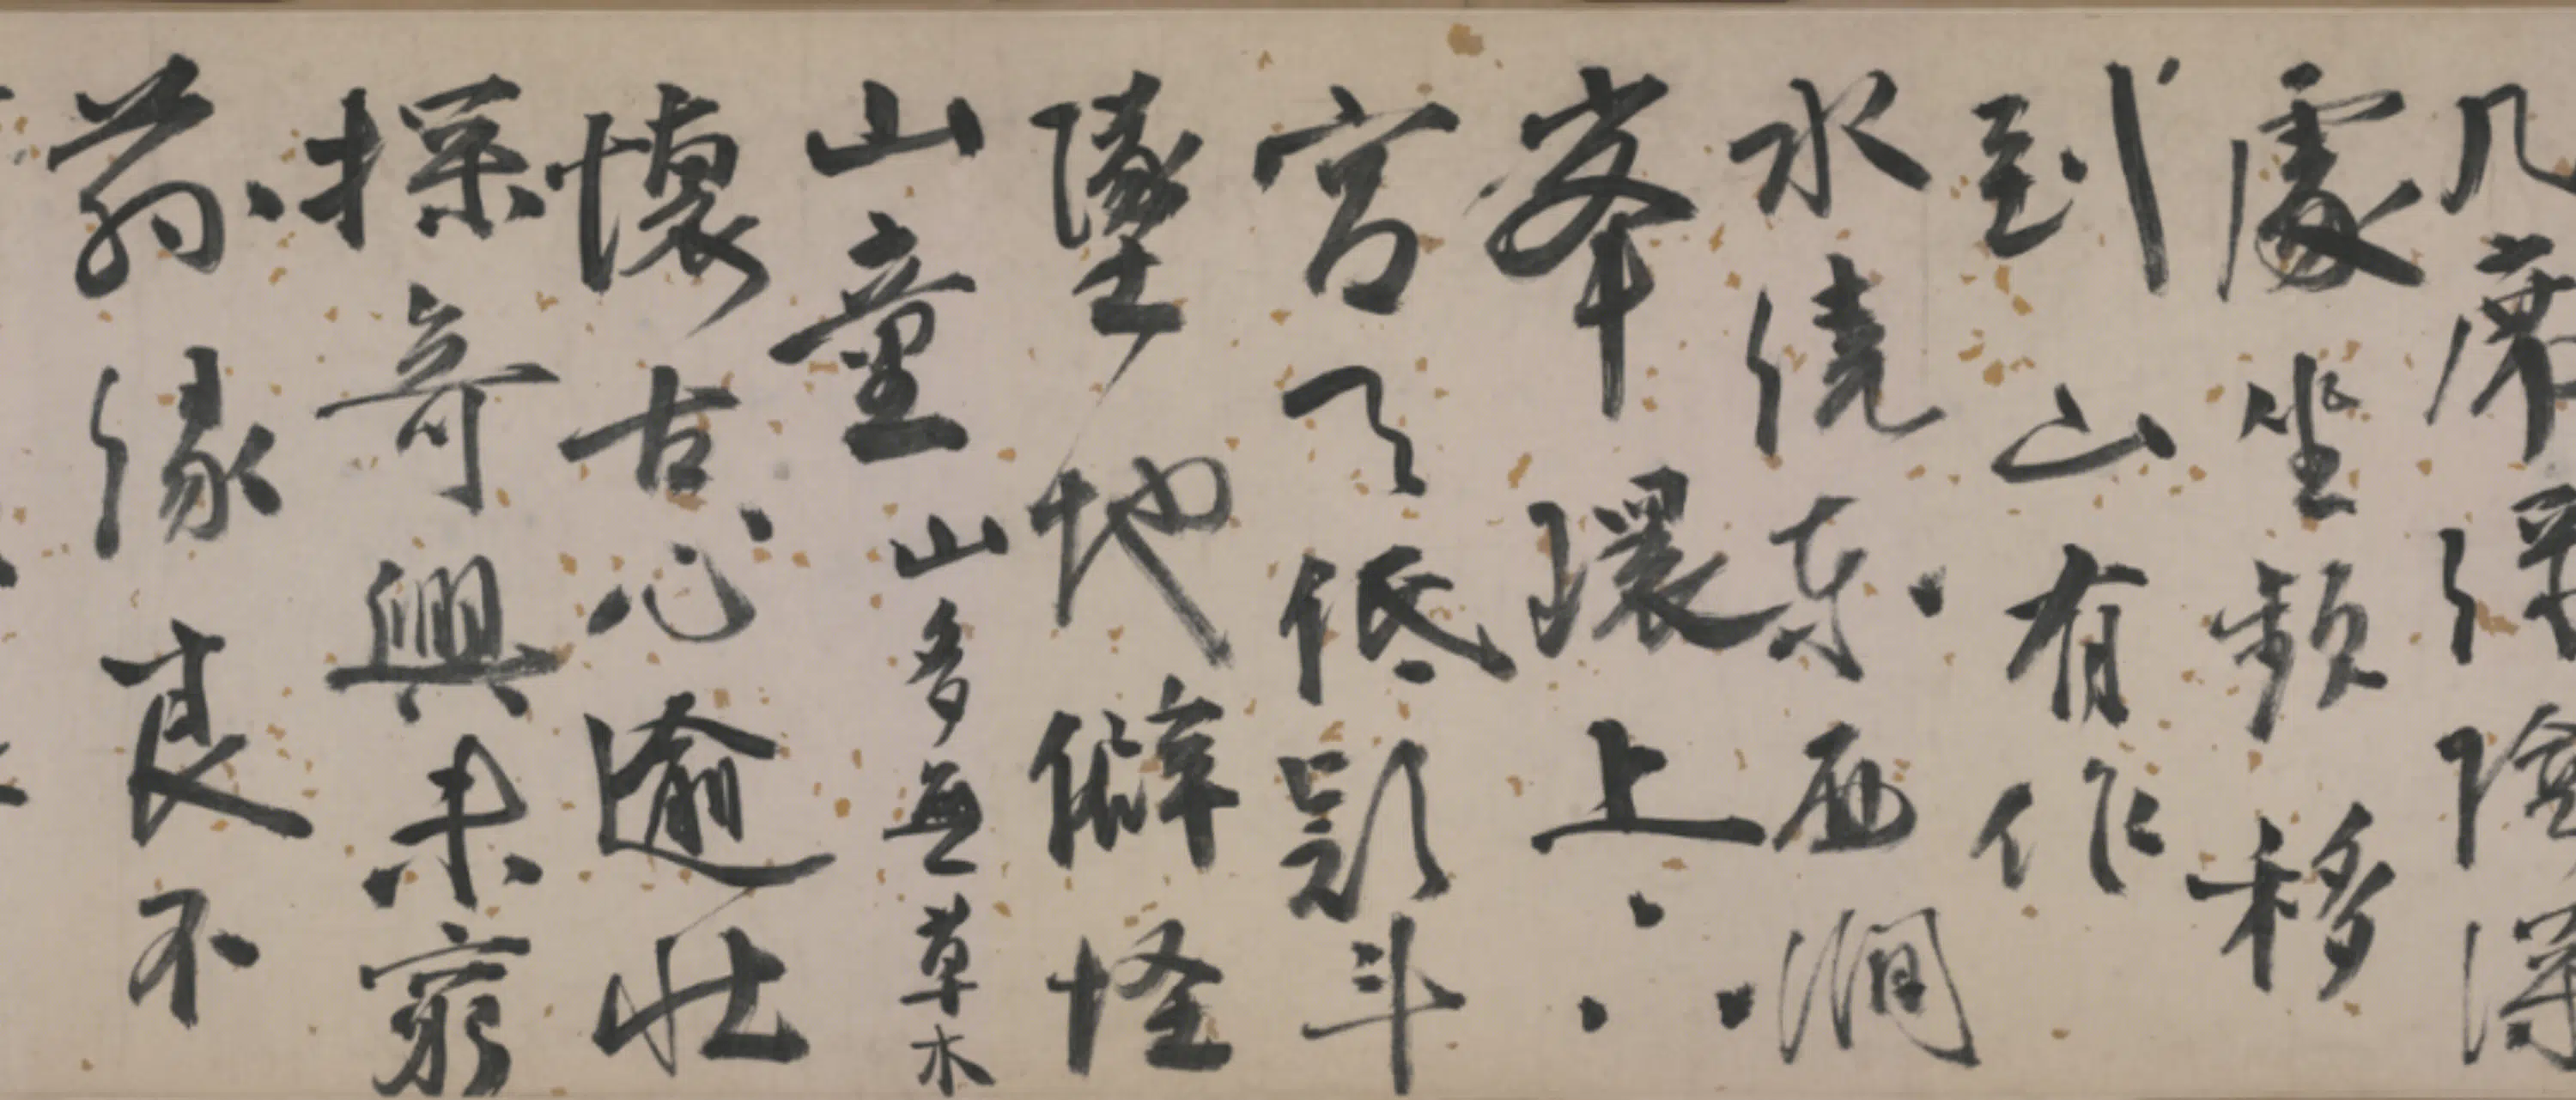 几席陰深
處坐頻移
到山有作
水繞東西澗
峯環上下
宮天低疑斗
墜地僻怪
山童山多無草木
懷古心逾壯
探奇興未窮
緣良不